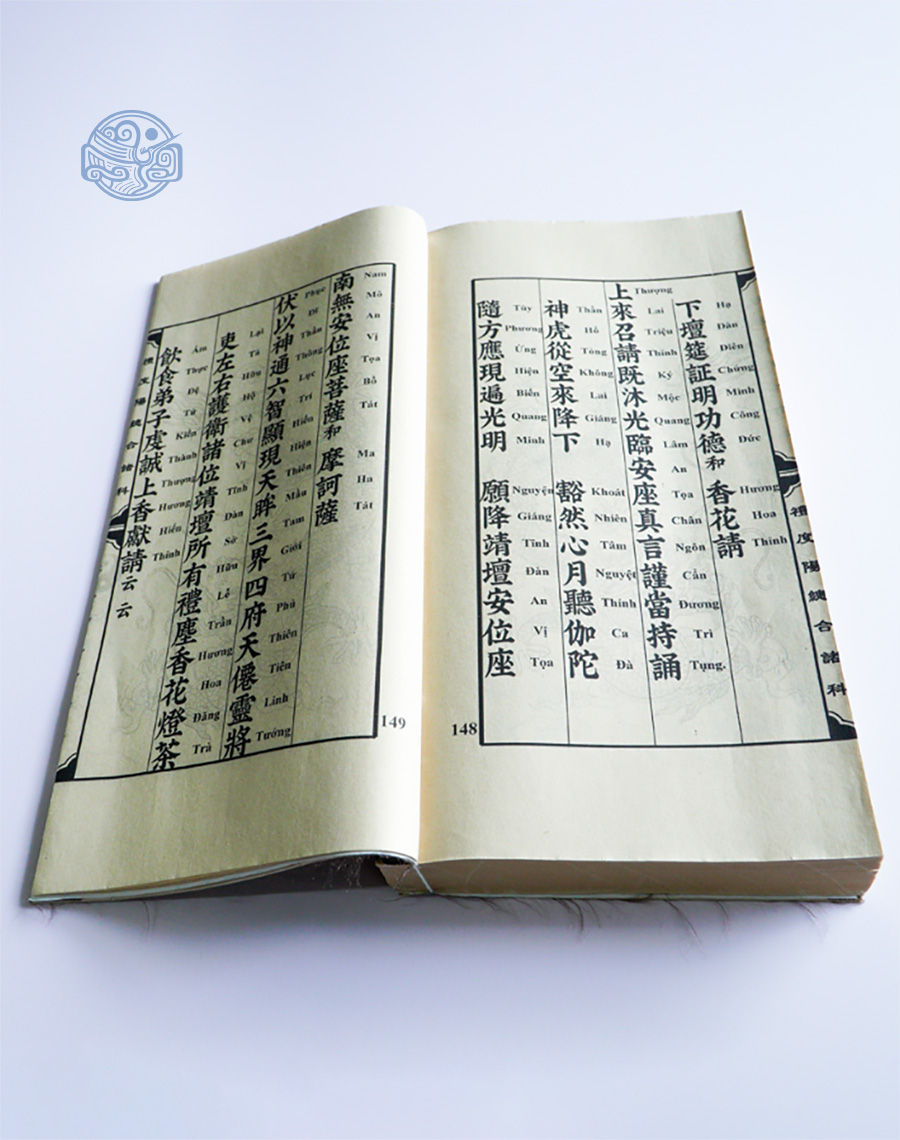 禮度陽總合諸科
下壇筵証明功德和 香花請
Hạ Đàn Diên Chứng Minh Công Đức Hương Hoa Thỉnh
上來召請既沐光臨安座真言謹當持誦
Thượng Lai Triệu Thỉnh Ký Mộc Quang Lâm An Tọa Chân Ngôn Cẩn Đương Trì Tụng.
神虎從空來降下 豁然心月聽伽陀
Thần Hổ Tòng Không Lai Giáng Hạ Khoát Nhiên Tâm Nguyệt Thính Ca Đà
隨方應現遍光明 願降靖壇安位座
Tùy Phương Ứng Hiện Biến Quang Minh Nguyện Giáng Tĩnh Đàn An Vị Tọa
148
南無安位座菩薩和 摩訶薩
Nam Mô An Vị Tọa Bồ Tát Ma Ha Tát
伏以神通六智顯現天眸三界四府天僊靈將
Phục Dĩ Thần Thông Lục Trí Hiển Hiện Thiên Mâu Tam Giới Tứ Phủ Thiên Tiên Linh Tướng
吏左右護衛諸位靖壇所有禮塵香花燈茶
Lại Tả Hữu Hộ Vệ Chư Vị Tĩnh Đàn Sở Hữu Lễ Trần Hương Hoa Đăng Trà
飲食弟子虔誠上香獻請云云
Ẩm Thực Đệ Tử Kiền Thành Thượng Hương Hiến Thỉnh
禮度陽總合諸科
149